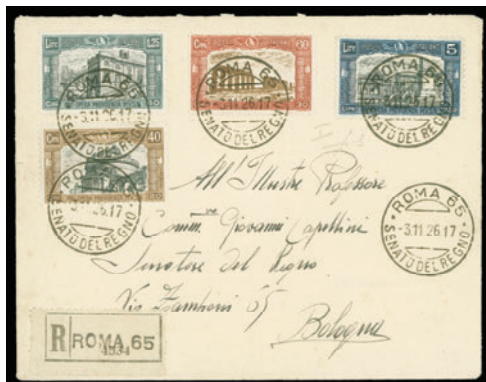 LIRE 1,25
Cmi 60
LIRE 5
Cmi 40
ROMA 65
-3.11.26.17
SENATO DEL REGNO
ROMA 65
-3.11.26.17
SENATO DEL REGNO
ROMA 65
-3.11.26.17
SENATO DEL REGNO
ROMA 65
26.17
SENATO DEL REGNO
ROMA 65
-3.11.26.17
SENATO DEL REGNO
All' Illustre Professore
Comm. ne Giovanni Capellini
Senatore del Regno
Via Zamboni 65
Bologna
R ROMA 65
4934